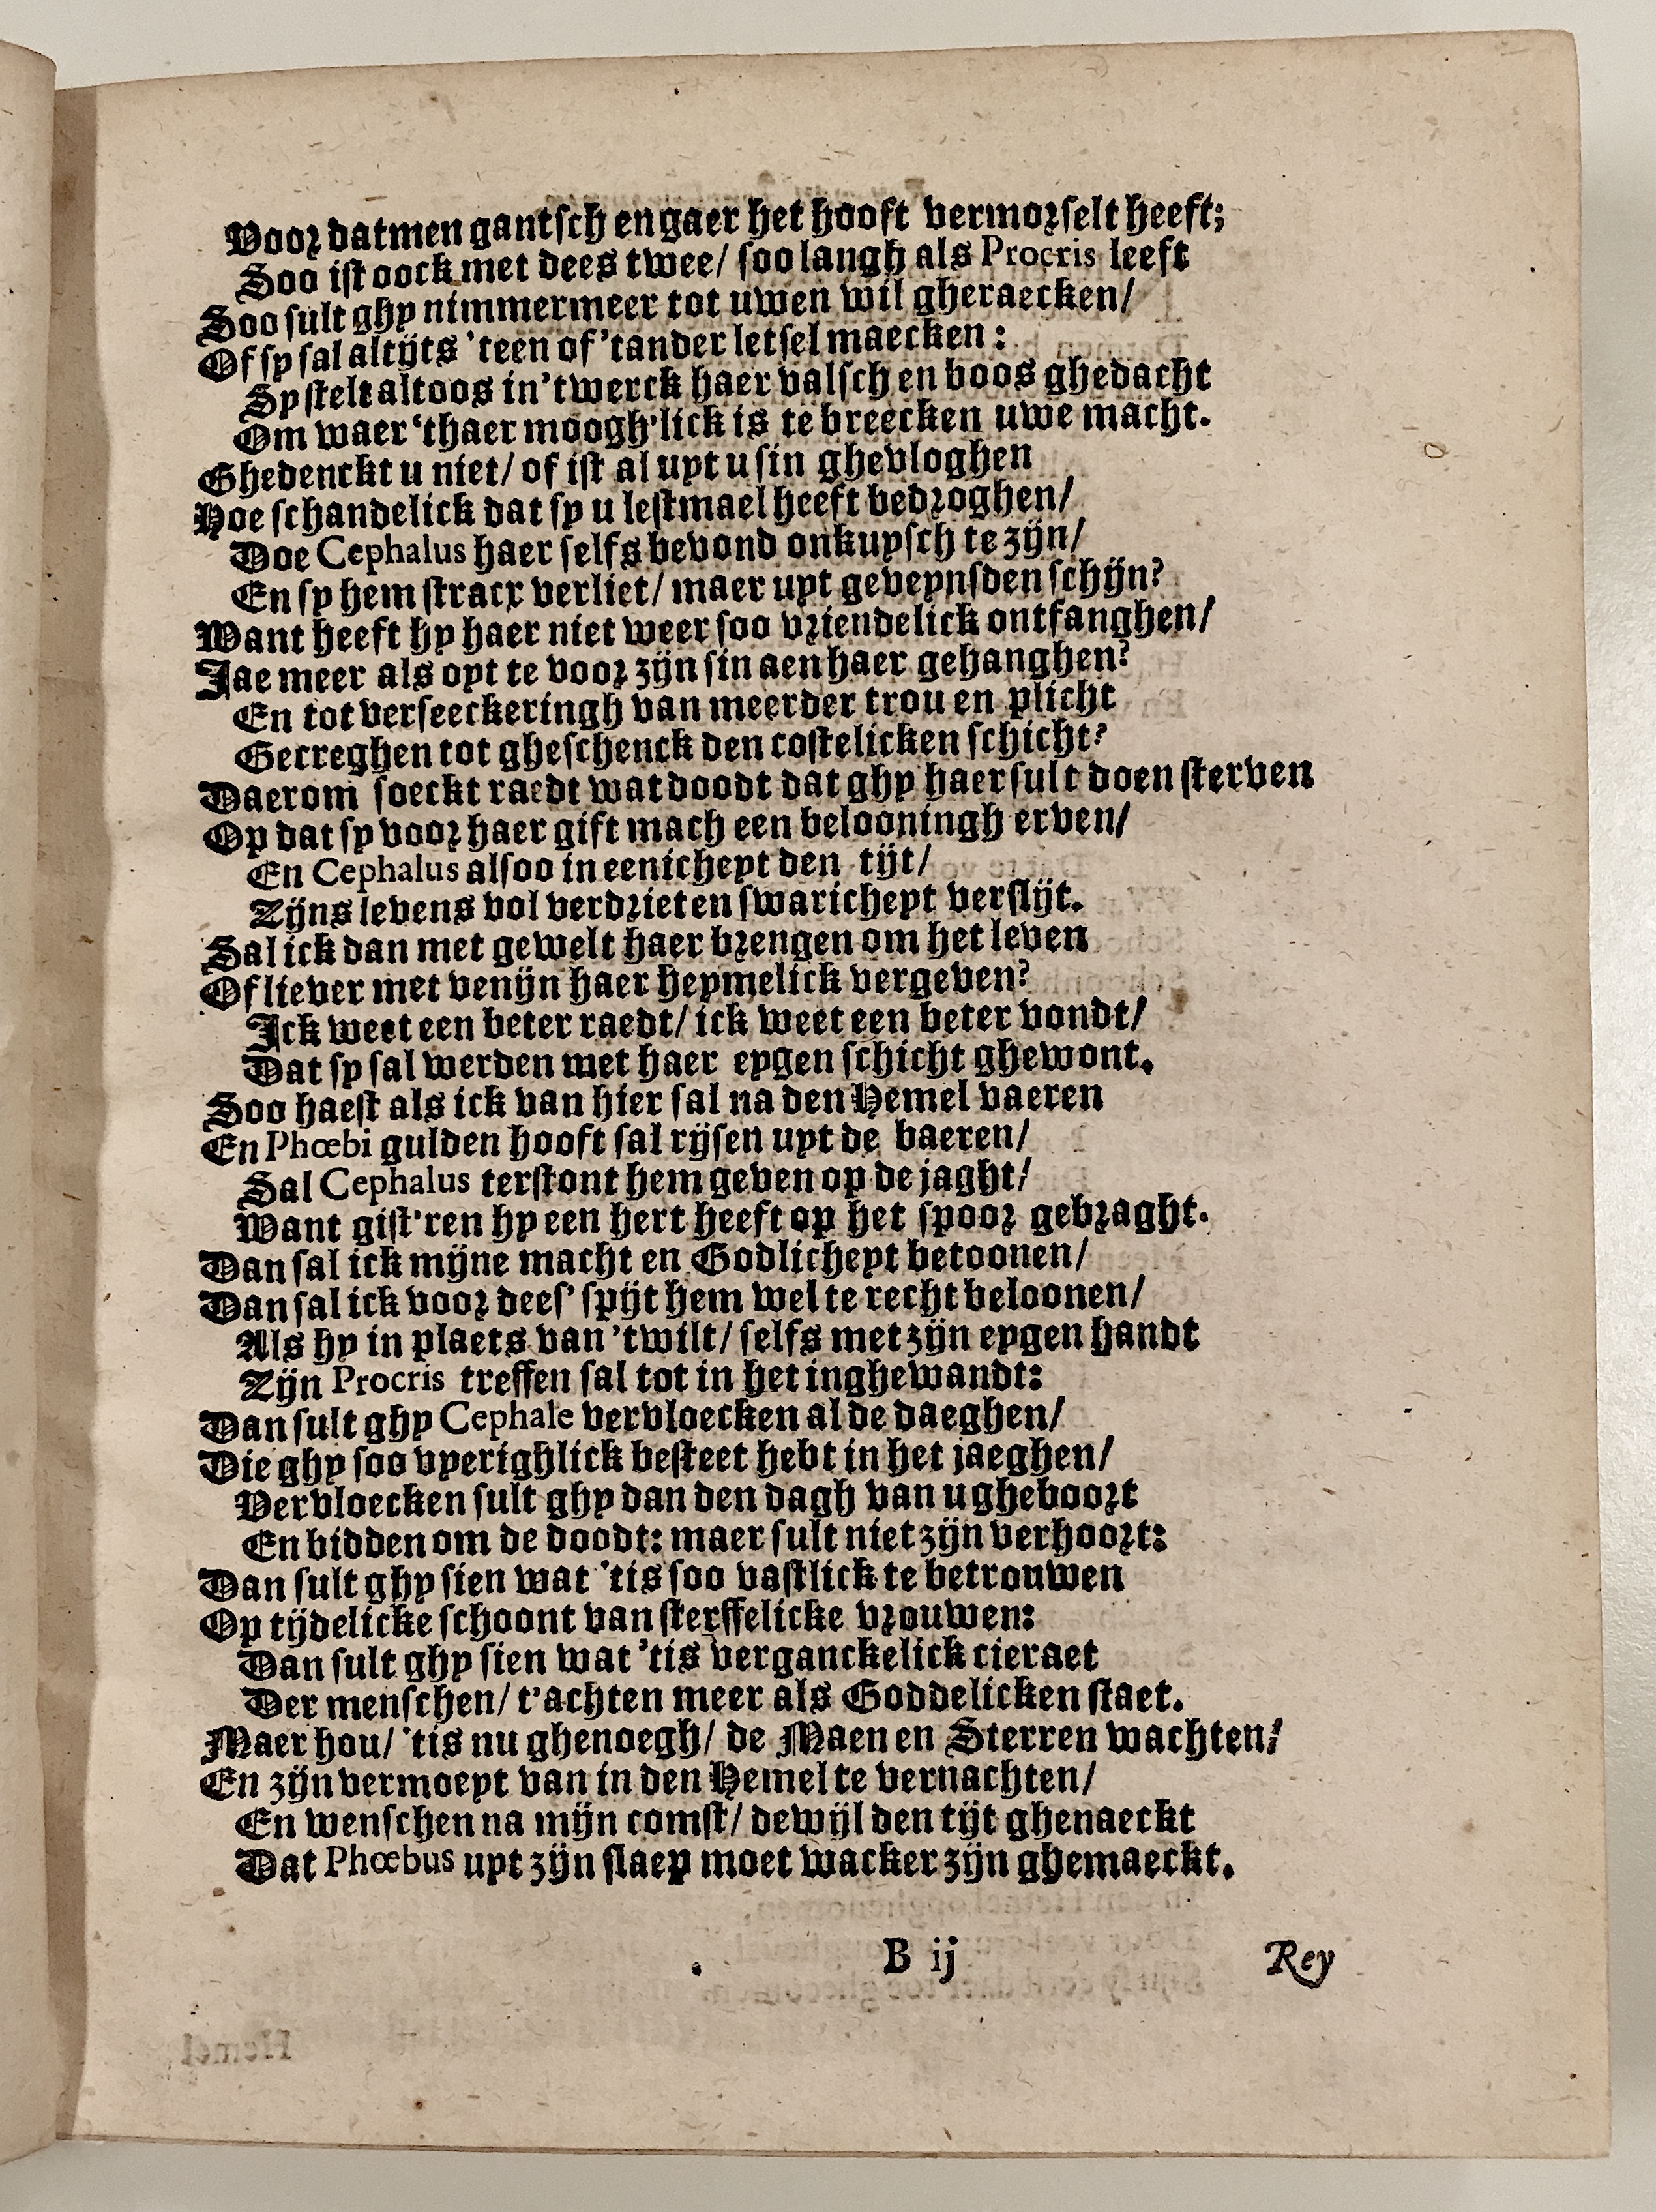 Voor datmen gantsch en gaer het hooft vermorselt heeft;
Soo ist oock met dees twee/ soo langh als Procris leeft
Soo sult ghy nimmermeer tot uwen wil gheraecken/
Of sy sal altijts 'teen of 'tander letsel maecken:
Sy stelt altoos in 'twerck haer valsch en boos ghedacht
Om waer 'thaer moogh'lick is te breecken uwe macht.
Ghedenckt u niet/ of ist al uyt u sin ghevloghen
Hoe schandelick dat sy u lestmael heeft bedroghen/
Doe Cephalus haer selfs bevond onkuysch te zijn/
En sy hem stracx verliet/ maer uyt geveynsden schijn?
Want heeft hy haer niet weer soo vriendelick ontfanghen/
Jae meer als oyt te voor zijn sin aen haer gehanghen?
En tot verseeckeringh van meerder trou en plicht
Gecreghen tot gheschenck den costelicken schicht?
Daerom soeckt raedt wat doodt dat ghy haer sult doen sterven
Op dat sy voor haer gift mach een belooningh erven/
En Cephalus alsoo in eenicheyt den tijt/
Zijns levens vol verdriet en swaricheyt verslijt.
Sal ick dan met gewelt haer brengen om het leven
Of liever met venijn haer heymelick vergeven?
Ick weet een beter raedt/ ick weet een beter vondt/
Dat sy sal werden met haer eygen schicht ghewont.
Soo haest als ick van hier sal na den Hemel vaeren
En Phœbi gulden hooft sal rijsen uyt de baeren/
Sal Cephalus terstont hem geven op de jaght/
Want gist'ren hy een hert heeft op het spoor gebraght.
Dan sal ick mijne macht en Godlicheyt betoonen/
Dan sal ick voor dees' spijt hem wel te recht beloonen/
Als hy in plaets van 'twilt/ selfs met zijn eygen handt
Zijn Procris treffen sal tot in het inghewandt:
Dan sult ghy Cephale vervloecken al de daeghen/
Die ghy soo vyerighlick besteet hebt in het jaeghen/
Vervloecken sult ghy dan den dagh van u gheboort
En bidden om de doodt: maer sult niet zijn verhoort:
Dan sult ghy sien wat 'tis soo vastlick te betrouwen
Op tijdelicke schoont van sterffelicke vrouwen:
Dan sult ghy sien wat 'tis verganckelick cieraet
Der menschen/ t'achten meer als Goddelicken staet.
Maer hou/ 'tis nu ghenoegh/ de Maen en Sterren wachten/
En zijn vermoeyt van in den Hemel te vernachten/
En wenschen na mijn comst/ dewijl den tijt ghenaeckt
Dat Phœbus uyt zijn slaep moet wacker zijn ghemaeckt.
B ij
Rey